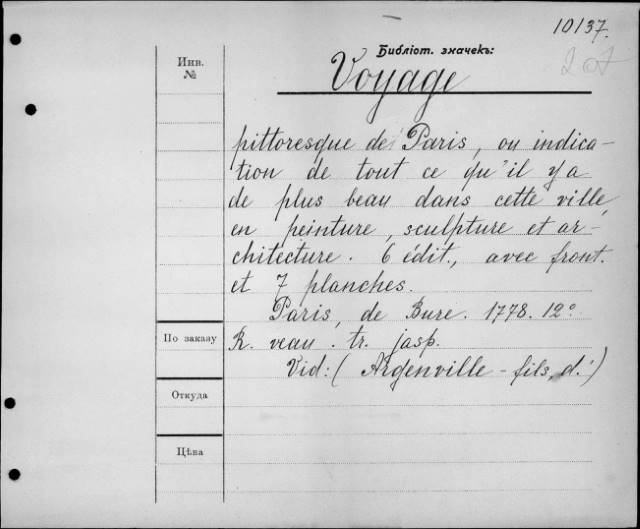 10137.
207
Библіот. значекъ:
Инв.
№
Voyage
pittoresque de Paris, ou indica-
tion de tout ce qu'il y a
de plus beau dans cette ville,
en peinture, sculpture et ar-
chitecture. 6 édit., avec front.
et 7 planches.
Paris, de Bure. 1778. 12º
По заказу
R. veau. tr. jasp.
Vid: (Argenville-fils, d.')
Откуда
Цѣна